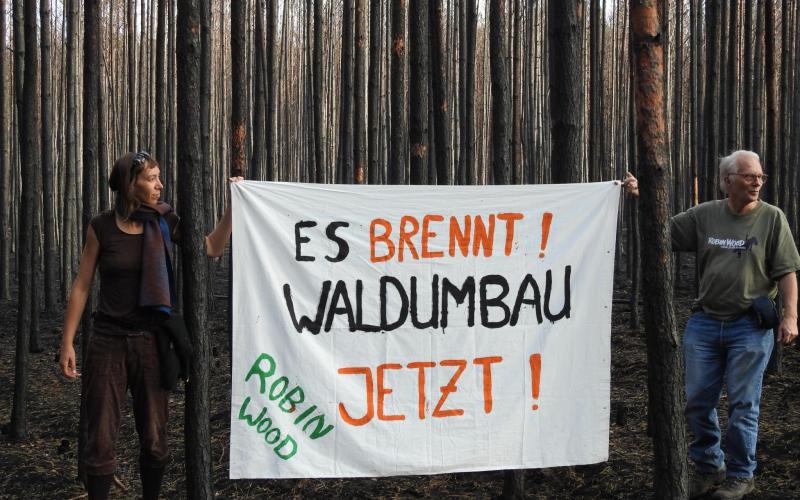 ES BRENNT !
WALDUMBAU
JETZT !
ROBIN
WOOD
ROBIN WOOD